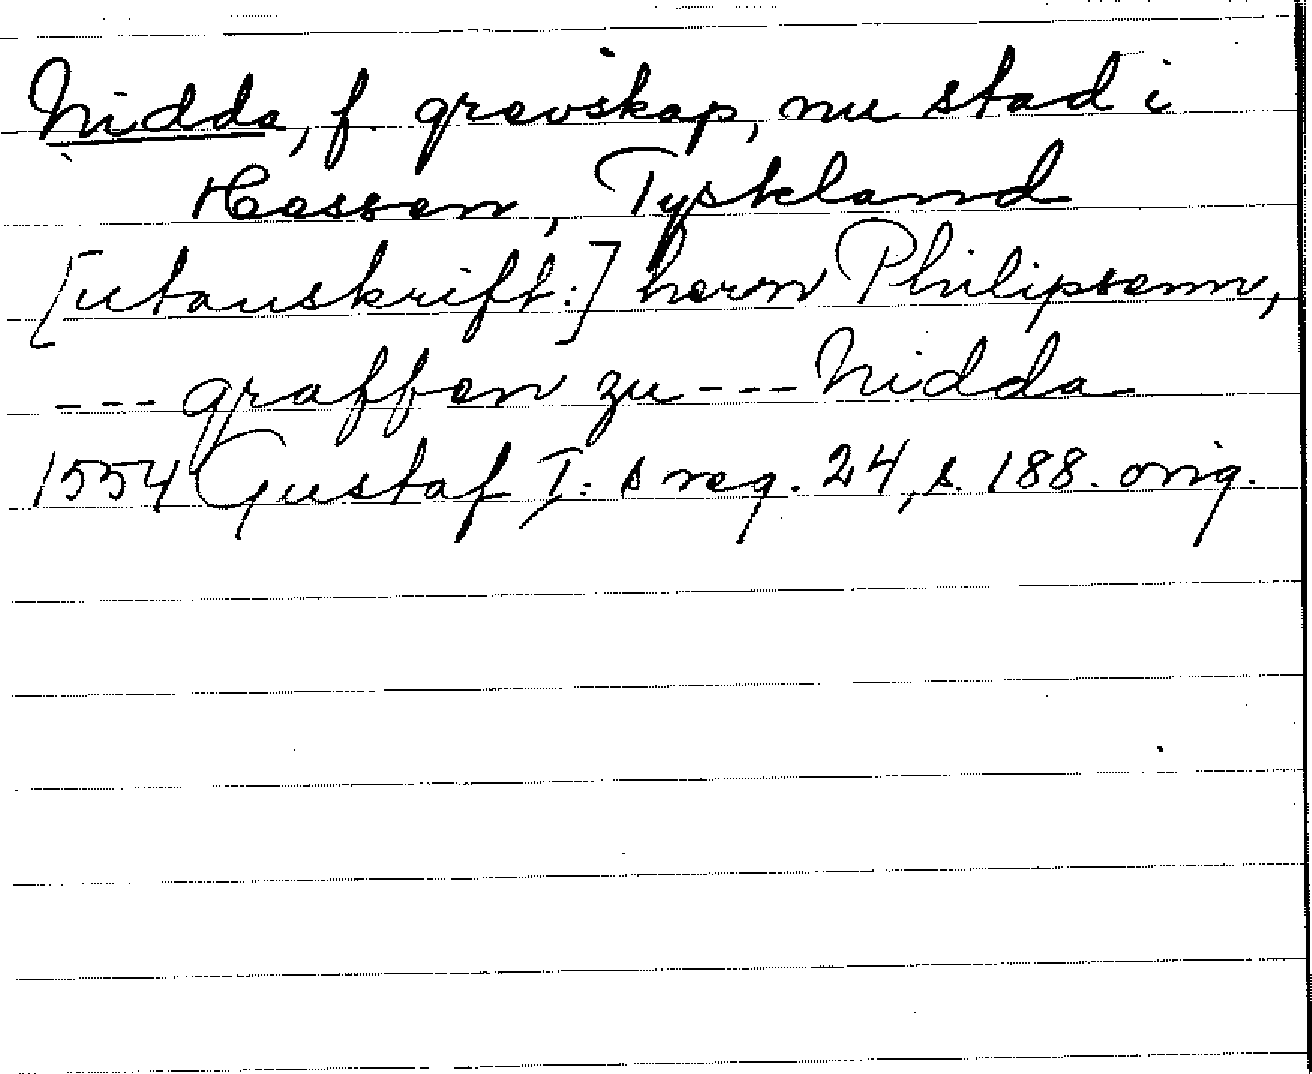 Nidda, f. grevskap, nu stad i
Hessen, Tyskland
[utanskrift:] herrn Philipsenn,
--- graffen zu --- Nidda
1554 Gustaf I:s reg. 24, s. 188. orig.